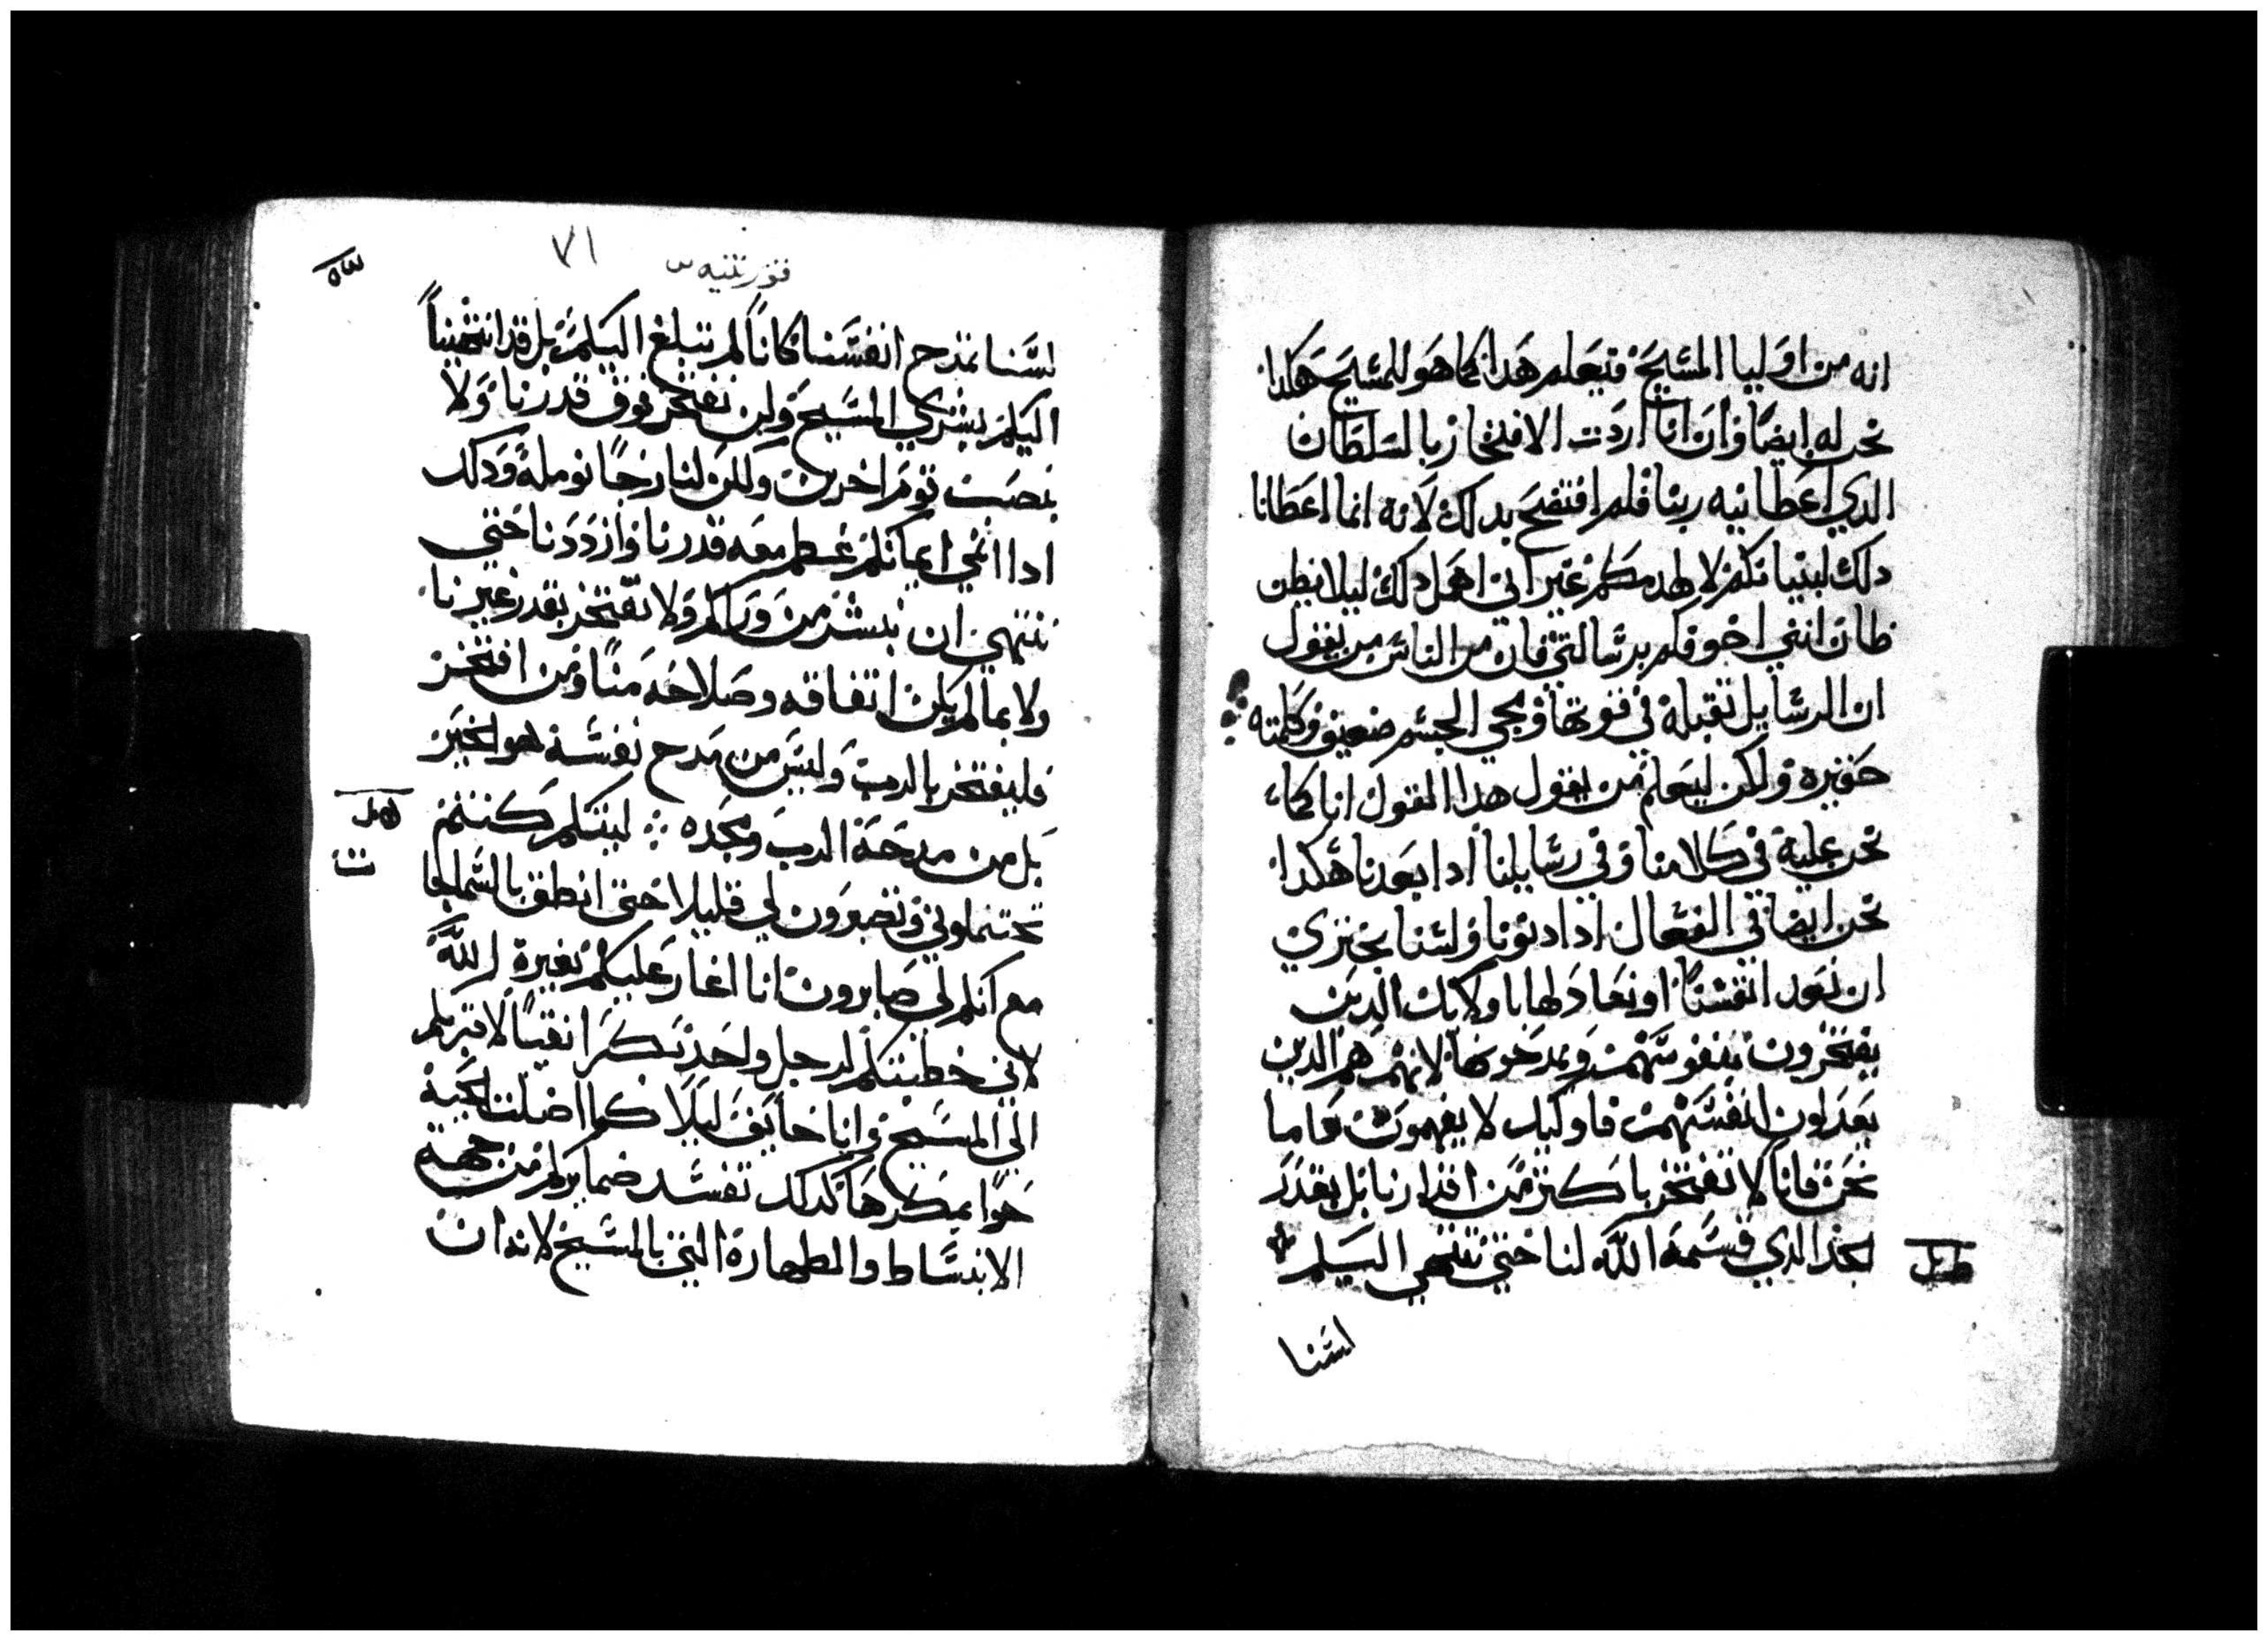 انه من اوليا المسيح فيعلم هدا انه كما هو للمسيح هكدا
نحن له ايضا وان انا اردت الافتخار بالسلطان
الدي اعطانيه ربنا فلم افتضح بدلك لانه انما اعطانا
دلك لبنيانكم لا لهدمكم غير اني اهمل دلك ليلا يظن
ظان انني اخوفكم برسالتي فان من الناس من يقول
ان الرسايل تقيلة في قوتها ومجي الجسم ضعيف وكلمته
حقيره ولكن ليعلم من يقول هدا القول انا كما
نحن عليه في كلامنا وفي رسايلنا ادا بعدنا هكدا
نحن ايضا في الفعال ادا دنونا ولسنا نجتري
ان نعد انفسنا او نعادلها باوليك الدين
يفتخرون بنفوسهم ويمدحونها لانهم هم الدين
يعدلون انفسهم فاوليك لا يفهمون فاما
نحن فانا لا نفتخر باكتر من اقدارنا بل بقدر
الحد الدي قسمه الله لنا حتي ننتهي اليكم
لسنا
٧١
قورنتيه س
لسنا نمدح انفسنا كانا لم نبلغ اليكم بل قد انتهينا
اليكم ببشري المسيح ولن نفتخر فوق قدرنا ولا
بنصب قوم اخرين ولكن لنا رجا نومله ودلك
ادا انمي ايمانكم عظم معه قدرنا وازددنا حتي
ننتهي ان نبشر من وراكم ولا نفتخر بقدر غيرنا
ولا بما لم يكن اتفاقه وصلاحه منا ومن افتخر
فليفتخر بالرب وليس من مدح نفسه هو الخبر
بل من مدحه الرب ومجده ليتكم كنتم
تحتملوني وتصبرون لي قليلا حتي انطق بالسماجا
مع انكم لي صابرون انا اغار عليكم بغيرة الله
لاني خطبتكم لرجل واحد بكرا نقيا لاقربكم
الي المسيح وانا خايف ليلا كما اضلت الحية
حوا بمكرها كدلك تفسد ضمايركم من جهة
الانبساط والطهارة التي بالمسيح لانه ان